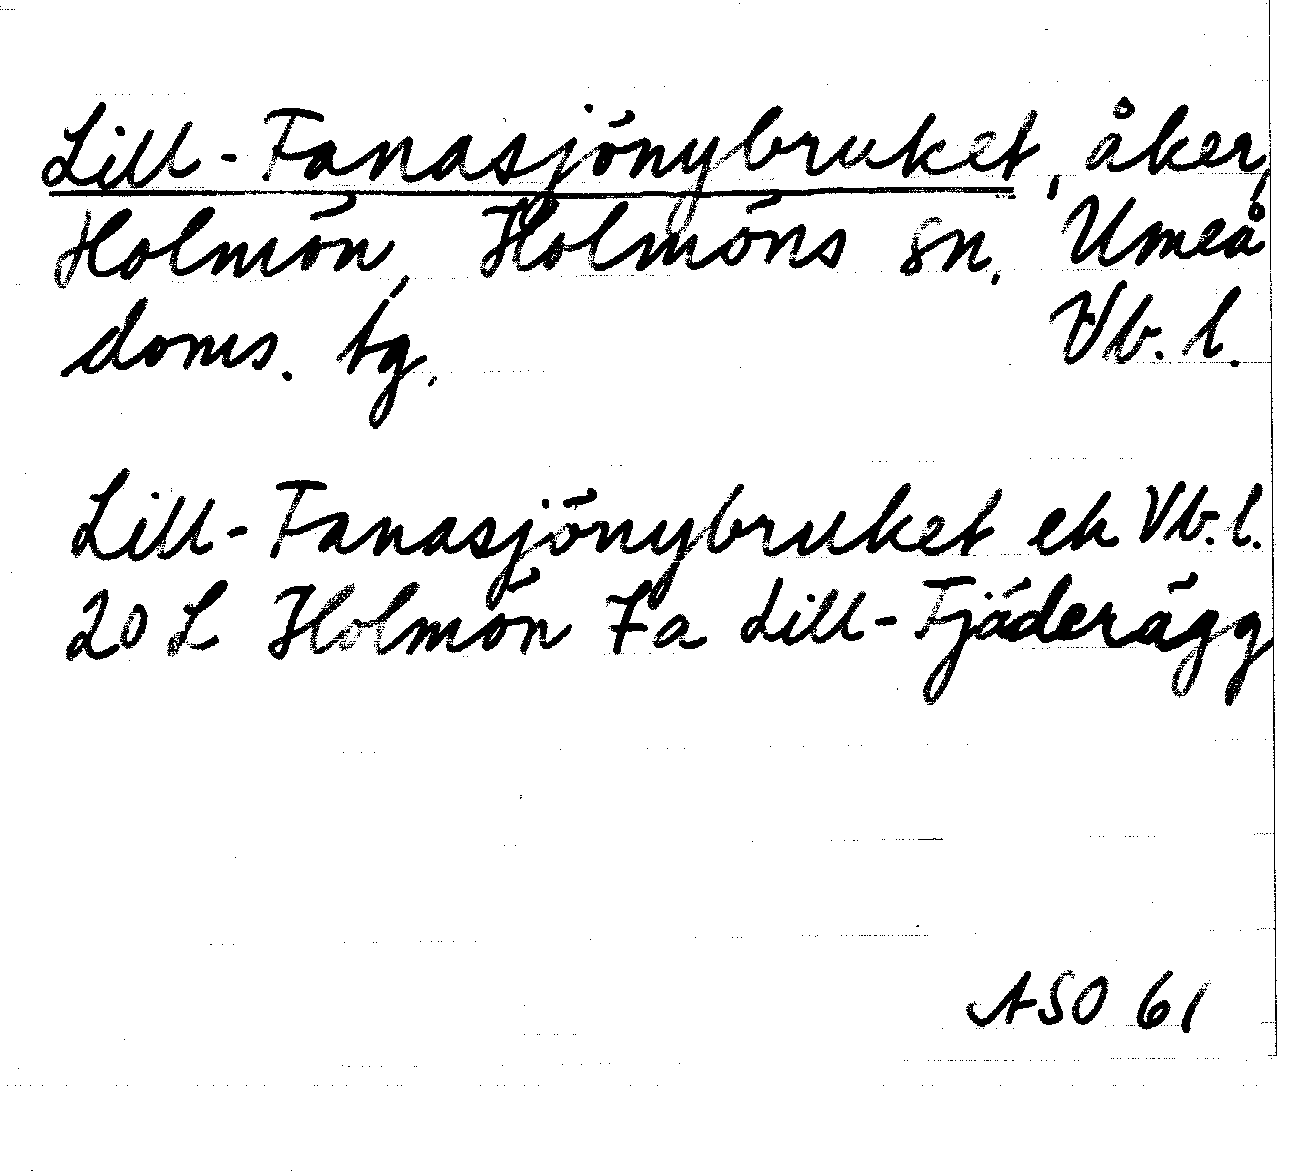 Lill-Fanasjönybruket, åker,
Holmön, Holmöns sn, Umeå
doms. tg, Vb. l.
Lill-Fanasjönybruket ek Vb. l.
20 L Holmön 7a Lill-Fjäderägg
ASO 61